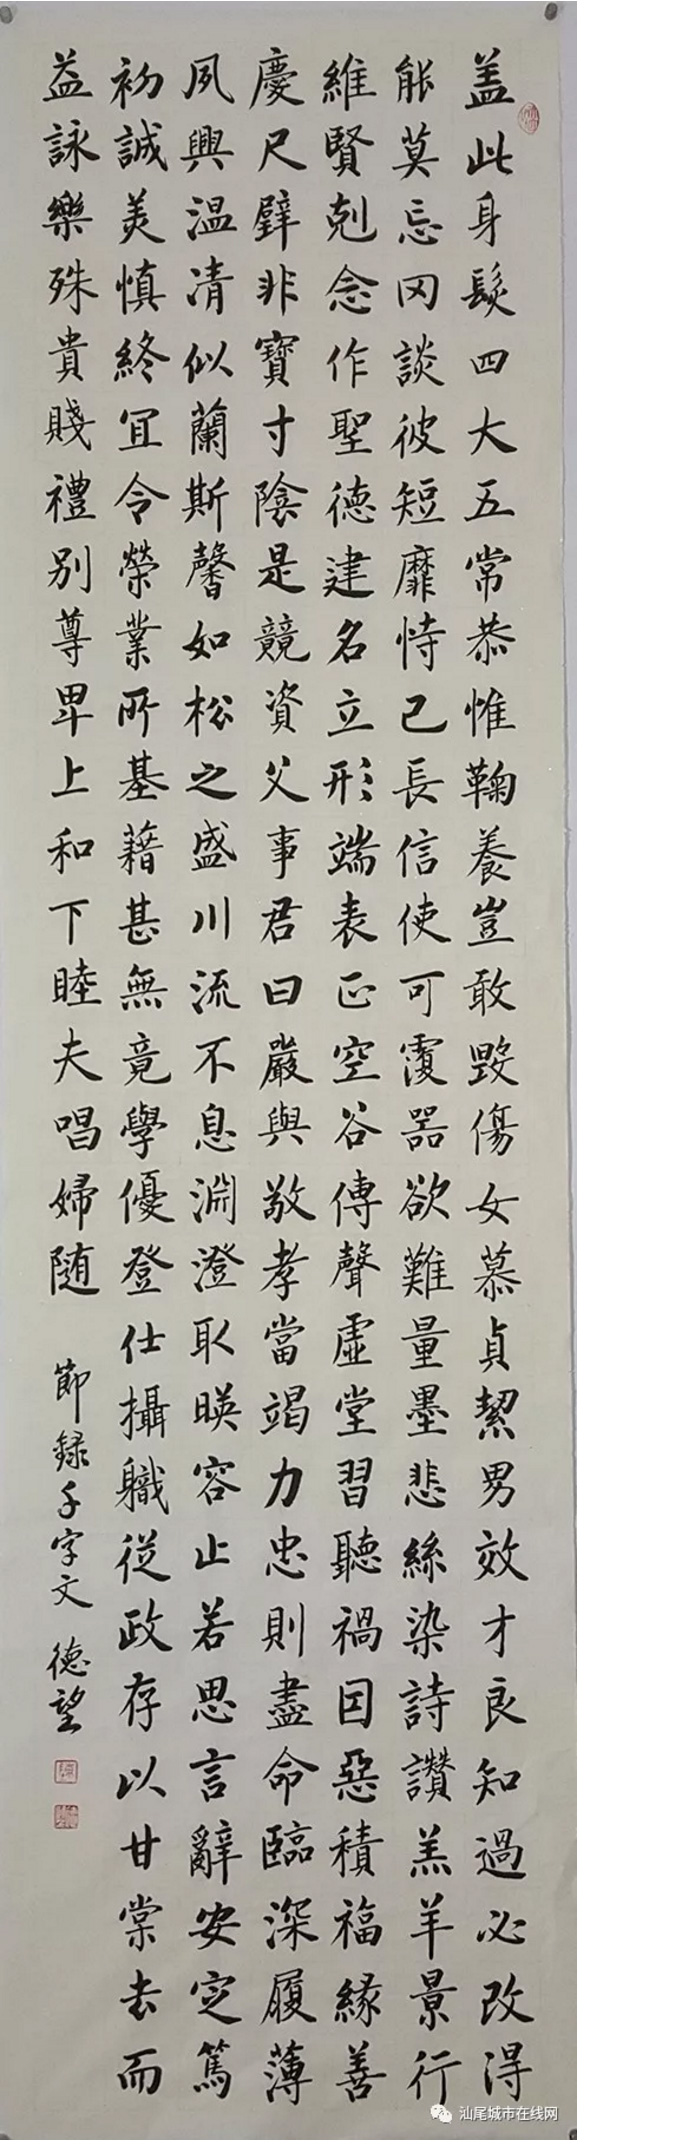 盖此身髮四大五常恭惟鞠養豈敢毀傷女慕貞絜男效才良知過必改得
能莫忘罔談彼短靡恃己長信使可覆器欲難量墨悲絲染詩讚羔羊景行
維賢剋念作聖德建名立形端表正空谷傳聲虛堂習聽禍因惡積福緣善
慶尺璧非寶寸陰是競資父事君曰嚴與敬孝當竭力忠則盡命臨深履薄
夙興温凊似蘭斯馨如松之盛川流不息淵澄取暎容止若思言辭安定篤
初誠美慎終宜令榮業所基藉甚無竟學優登仕攝職從政存以甘棠去而
益詠樂殊貴賤禮別尊卑上和下睦夫唱婦随
節録千字文 德望
汕尾城市在线网